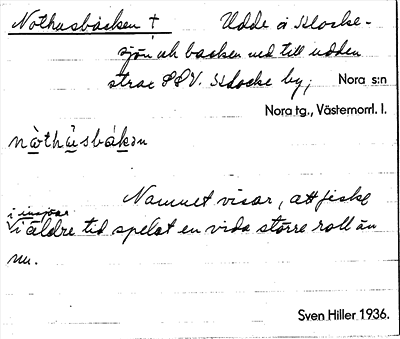 Nothusbacken † Udde i Klocke-
sjön och backen ned till udden
strax SSV. Klocke by; Nora s:n
Nora tg., Västernorrl. l.
nòthùsbákən
Namnet visar, att fiske
i insjöar
i äldre tid spelat en vida större roll än
nu.
Sven Hiller 1936.